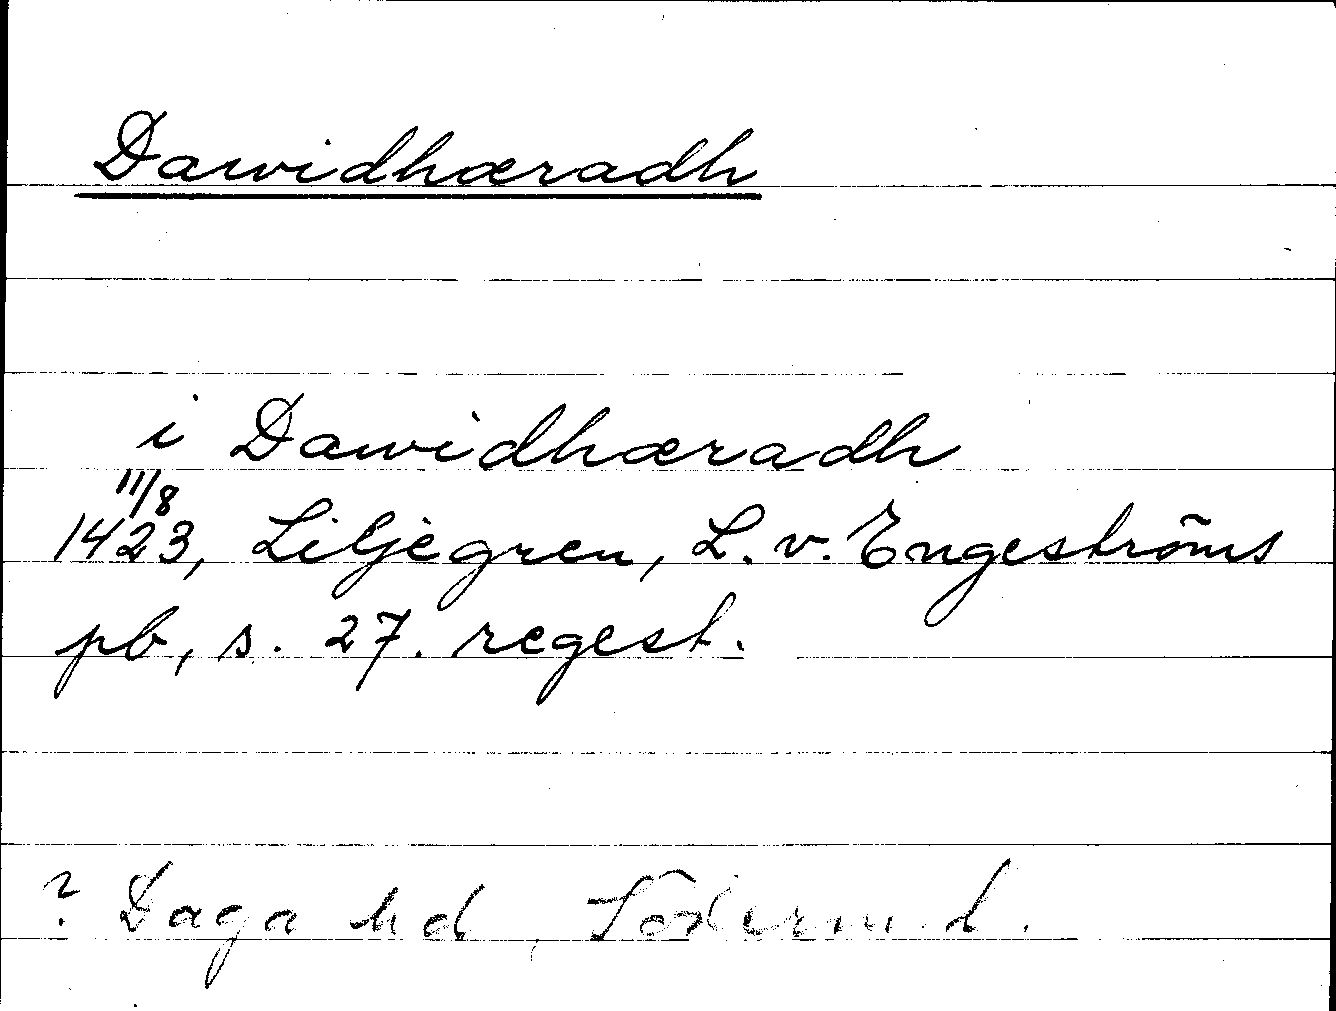 Dawidhæradh
i Dawidhæradh
11/8
1423, Liljegren, L. v. Engeströms
pb, s. 27. regest.
? Daga hd, Söderm. l.